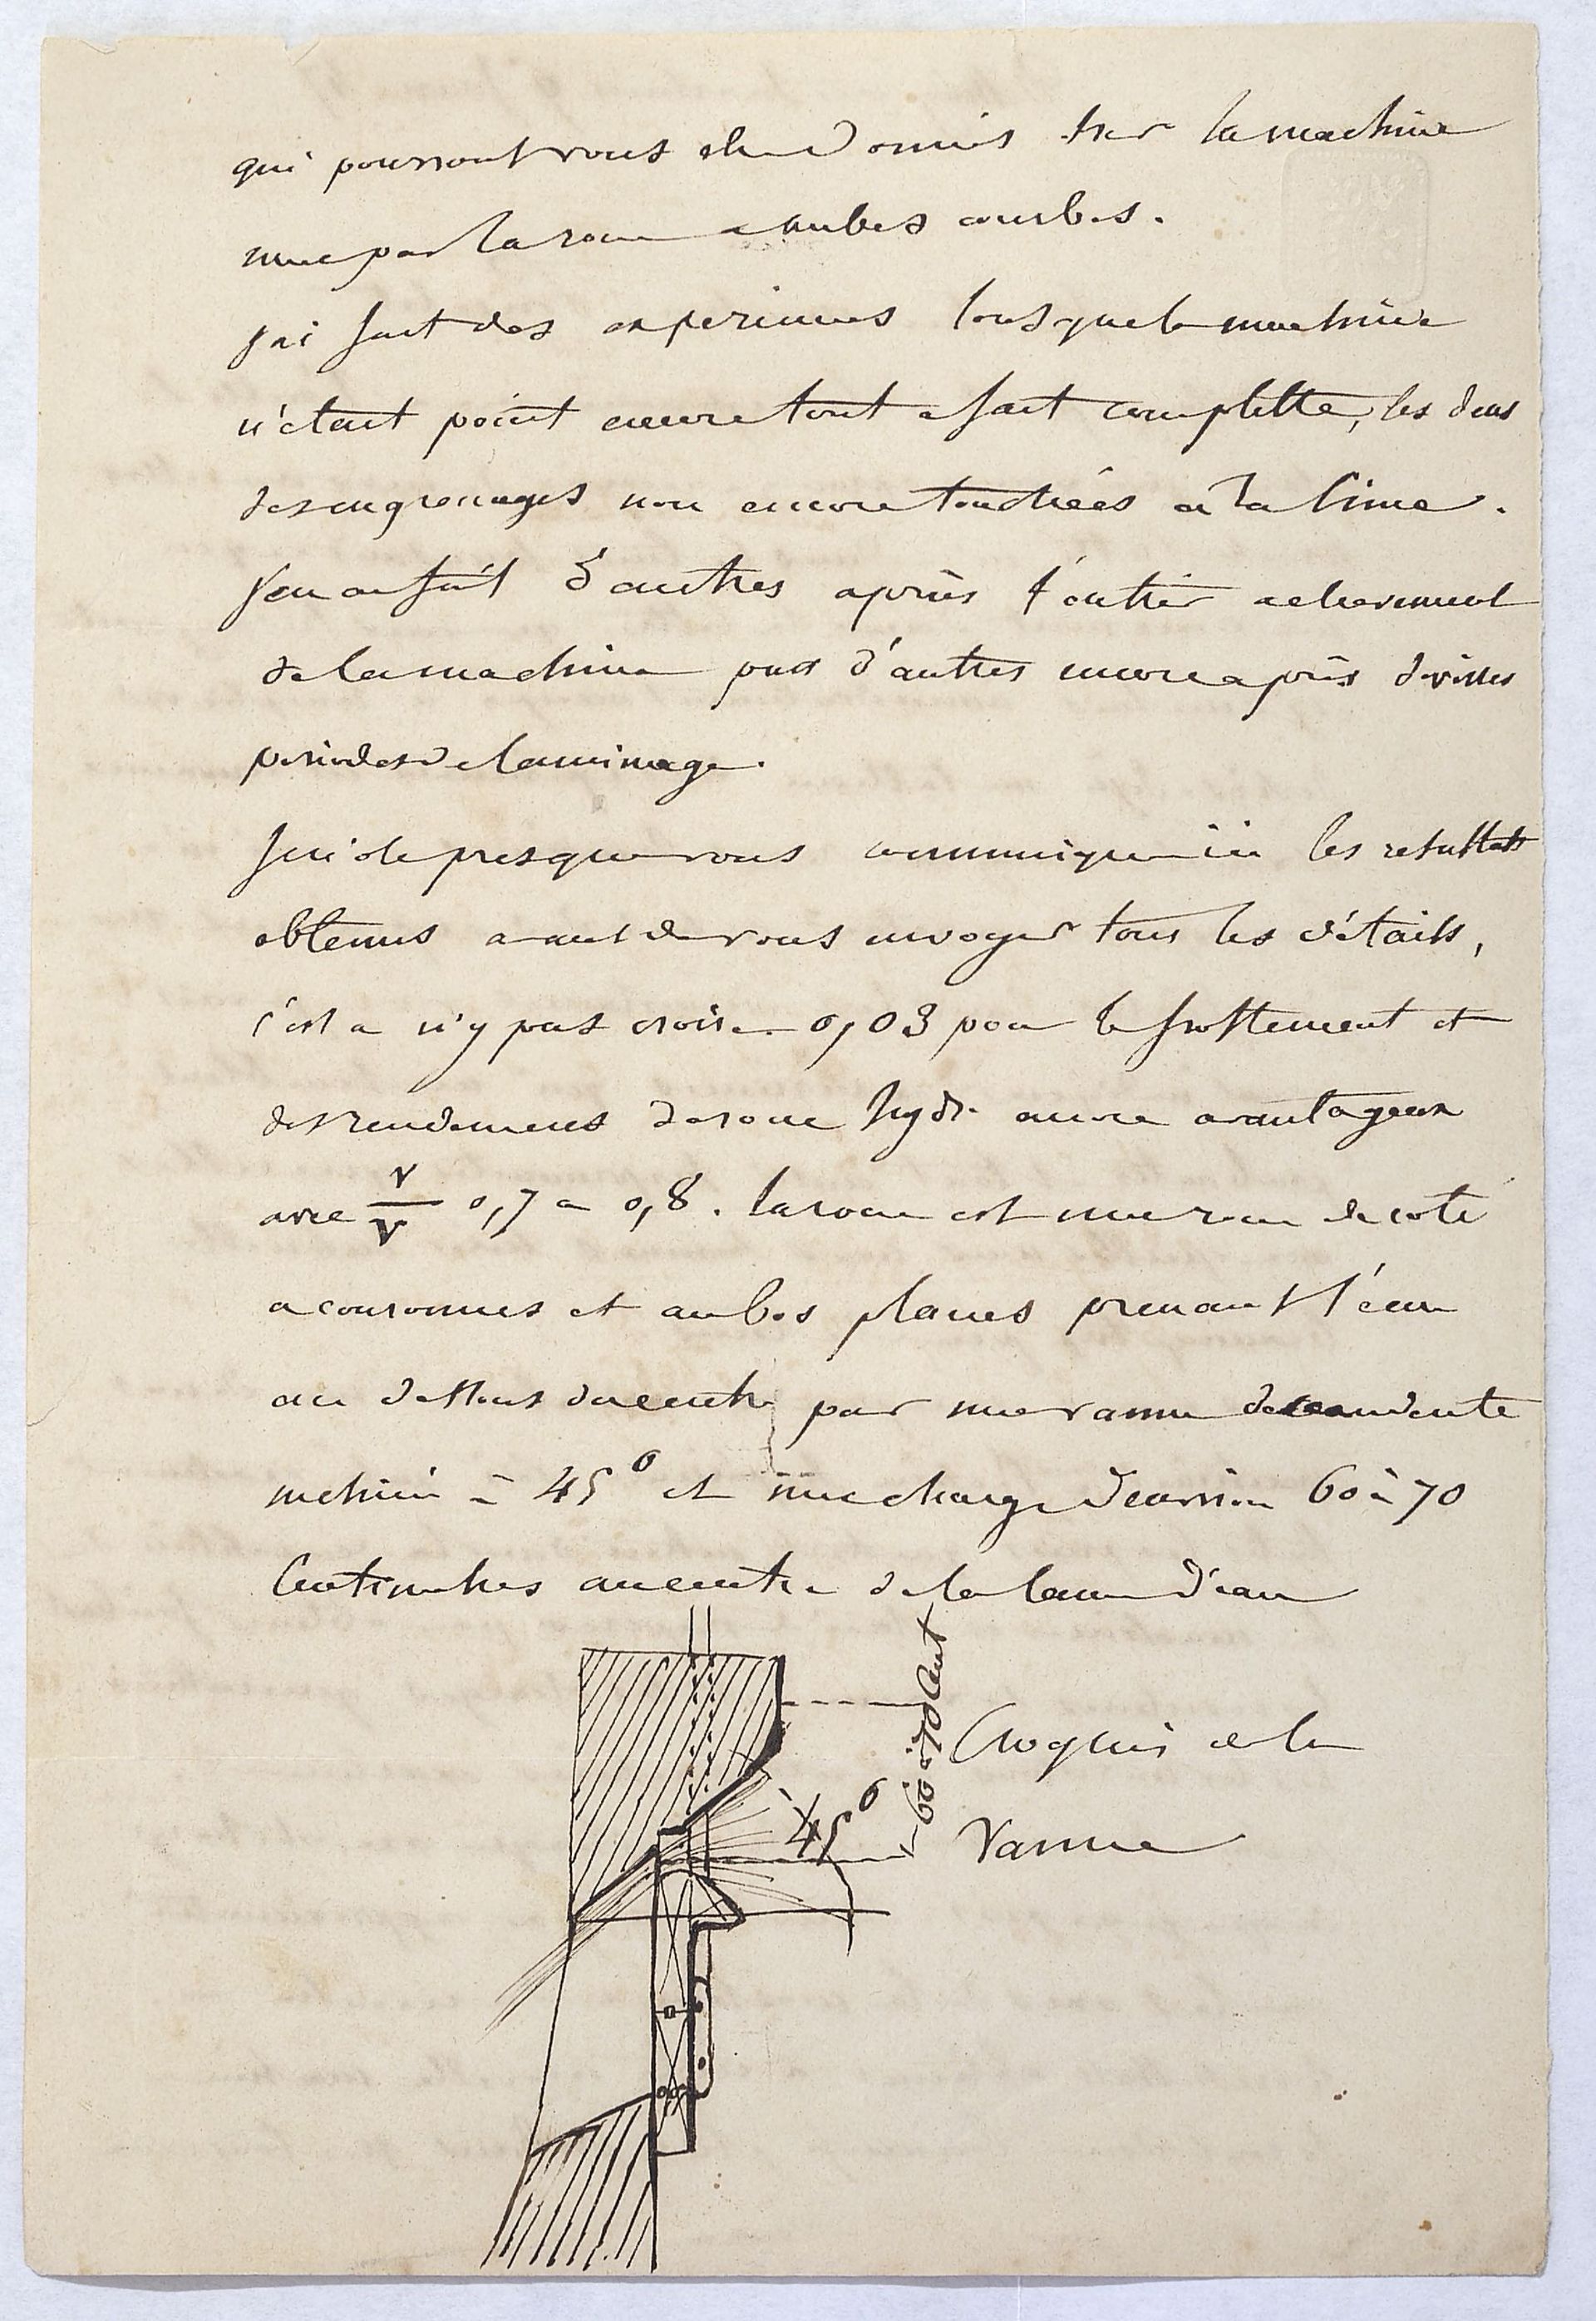 qui pourront vous être donnés sur la machine
mue par la roue a aubes courbes.
j'ai fait des experiences lorsque la machine
n'étant point encore tout a fait complette, les dens
des engrenages non encore touchées a la lime.
j'en ai fait d'autres après l'entier achevement
de la machine puis d'autres encore après diverses
periodes de laminage.
je n'ole presque vous communiquer ici les resultats
obtenus avant de vous envoyer tous les détails,
c'est a n'y pas croire 0,03 pour le frottement et
des rendemens de roue hydr. encore avantageux
avec v/V 0,7 a 0,8. la roue est une roue de coté
a couronnes et aubes planes prenant l'eau
au dessous du centre par une vanne descendente
incliné à 45° et une charge d'environ 60 à 70
Centimetres au centre de la lame d'eau
60 à 70 Cent
Croquis de la
45°
Vanne